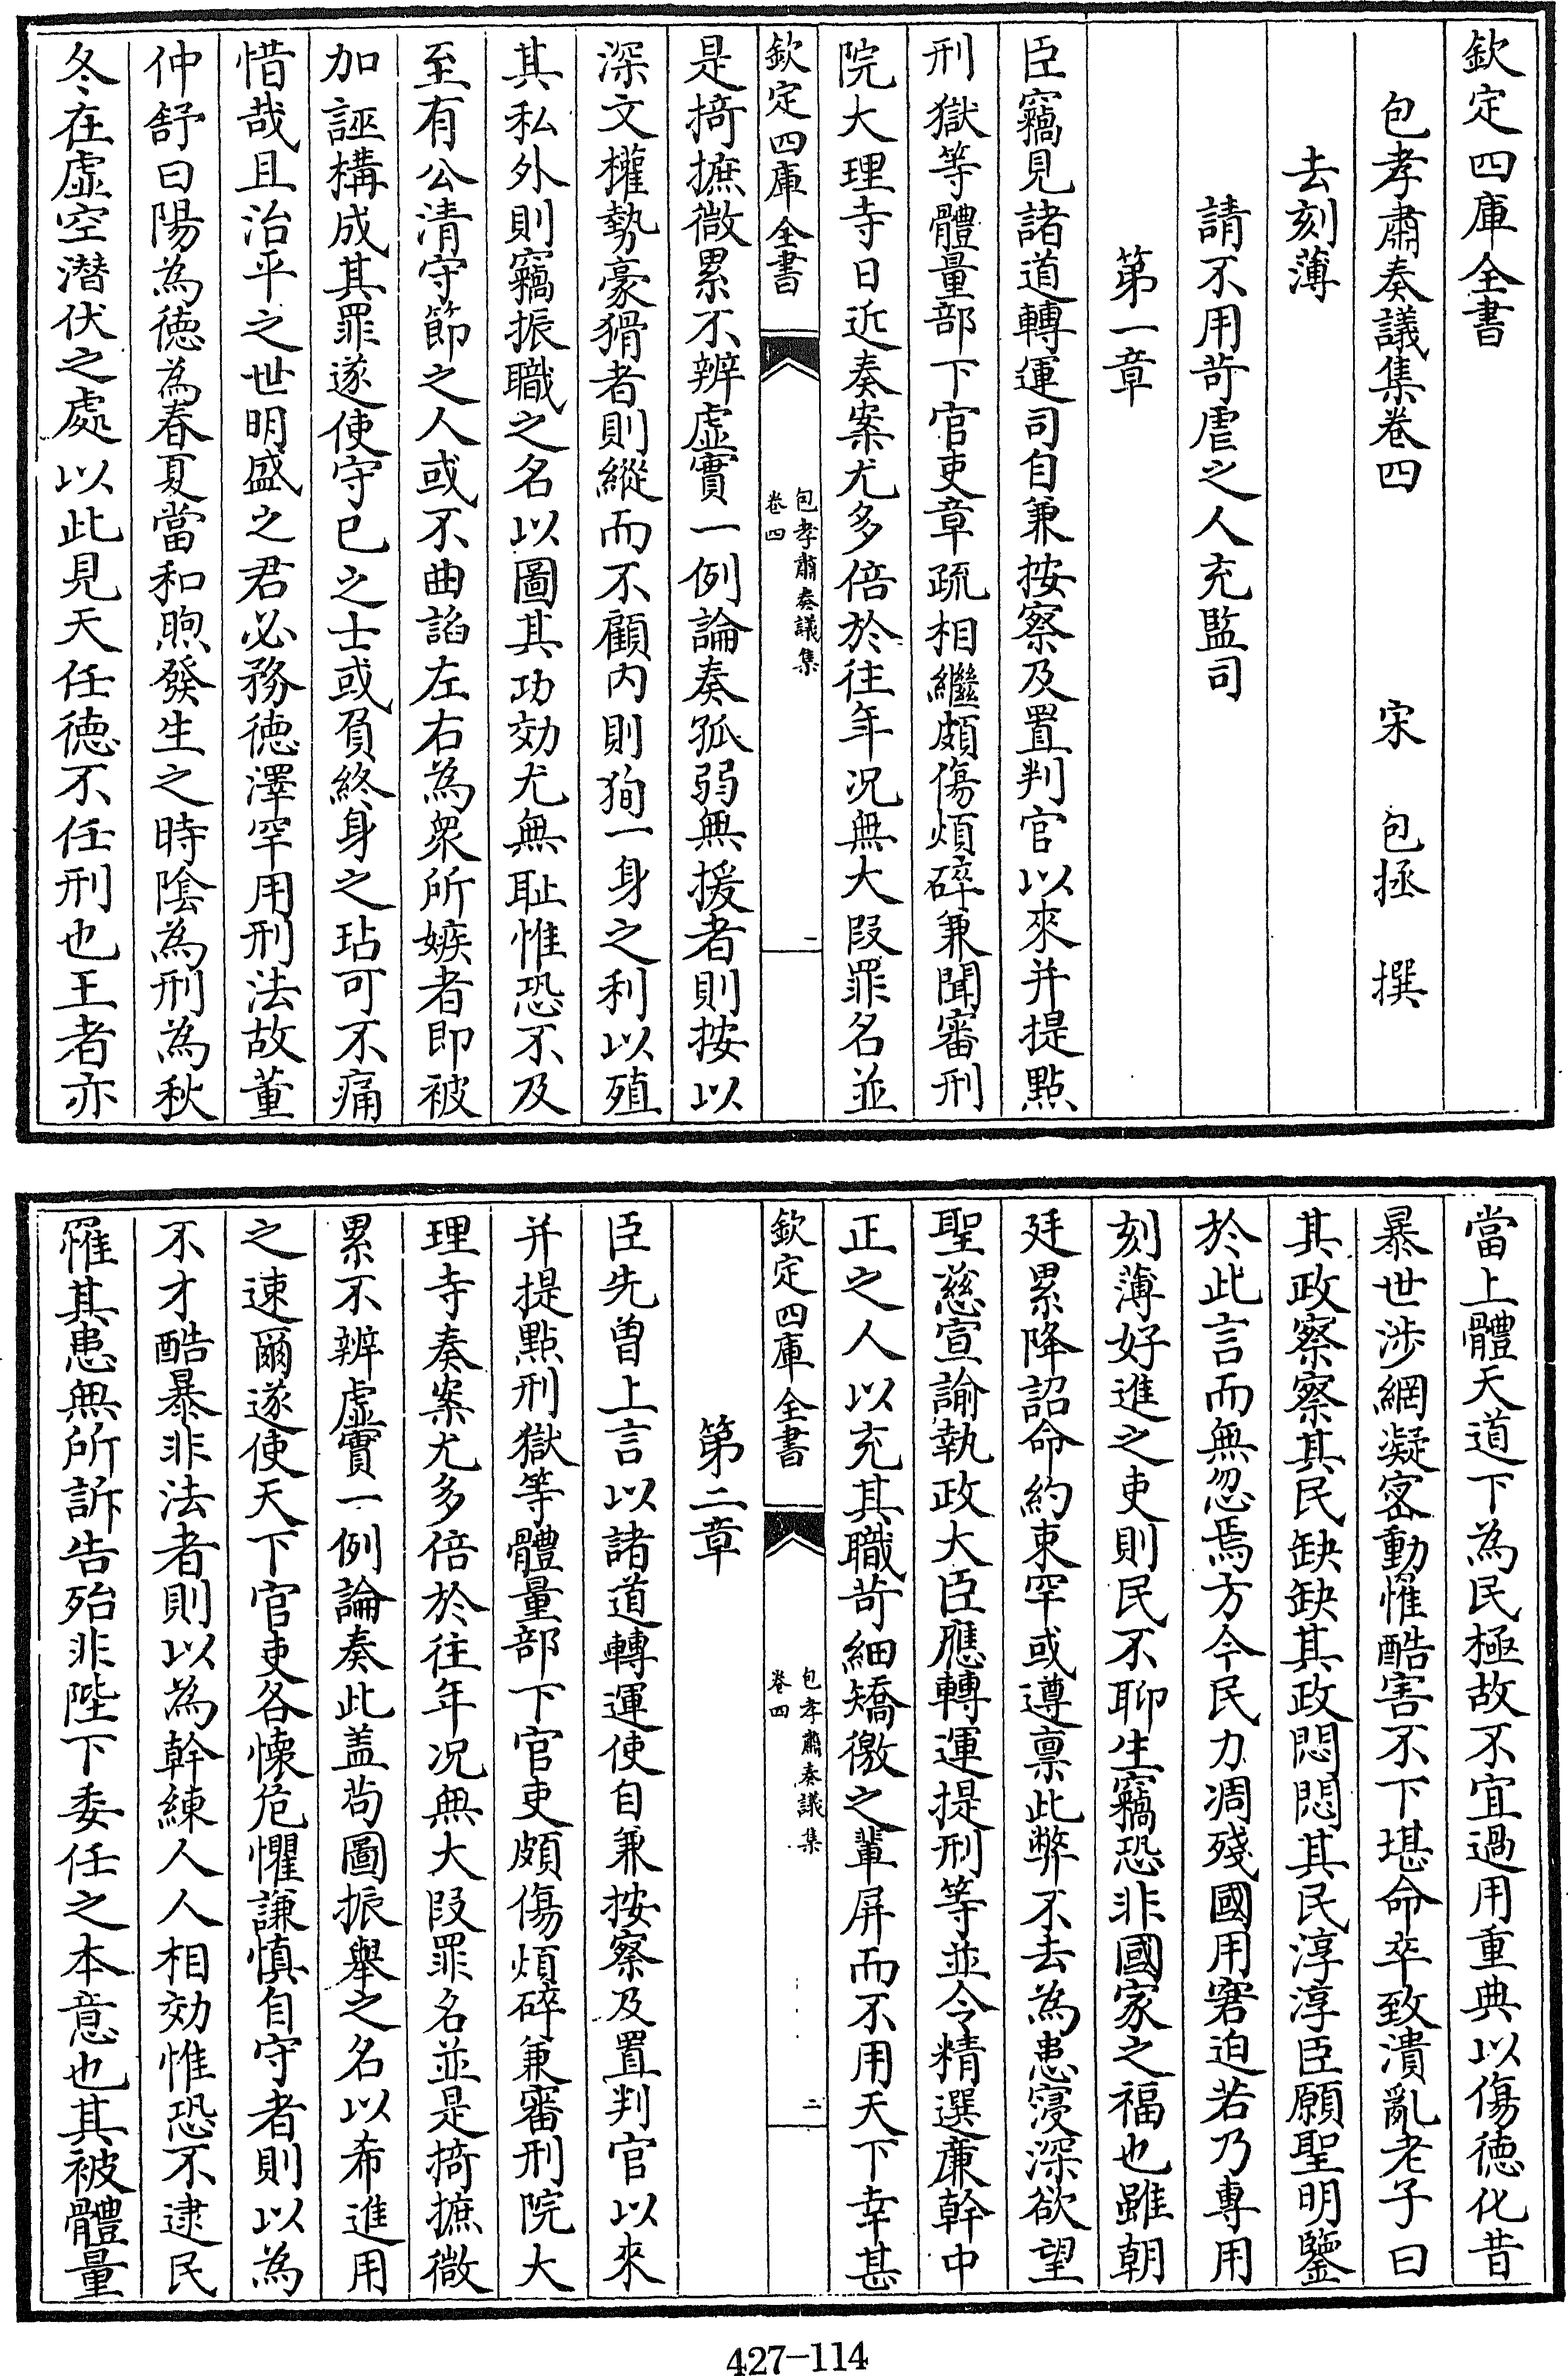 欽定四庫全書
包孝肅奏議集卷四　宋　包拯　撰
去刻薄
請不用苛虐之人充監司
第一章
臣竊見諸道轉運司自兼按察及置判官以來并提點
刑獄等體量部下官吏章疏相繼頗傷煩碎兼聞審刑
院大理寺日近奏案尤多倍於往年况無大段罪名並
欽定四庫全書
包孝肅奏議集
卷四
一
是掎摭微累不辨虛實一例論奏孤弱無援者則按以
深文權勢豪猾者則縱而不顧内則狥一身之利以殖
其私外則竊振職之名以圖其功効尤無耻惟恐不及
至有公清守節之人或不曲諂左右為衆所嫉者即被
加誣構成其罪遂使守已之士或負終身之玷可不痛
惜哉且治平之世明盛之君必務徳澤罕用刑法故董
仲舒曰陽為徳為春夏當和煦發生之時隂為刑為秋
冬在虛空潛伏之處以此見天任徳不任刑也王者亦
當上體天道下為民極故不宜過用重典以傷徳化昔
暴世涉網凝宻動罹酷害不下堪命卒致潰亂老子曰
其政察察其民缺缺其政悶悶其民淳淳臣願聖明鑒
於此言而無忽焉方今民力凋殘國用窘迫若乃專用
刻薄好進之吏則民不聊生竊恐非國家之福也雖朝
廷累降詔命約束罕或遵禀此弊不去為患寖深欲望
聖慈宣諭執政大臣應轉運提刑等並令精選亷幹中
正之人以充其職苛細矯徼之輩屏而不用天下幸甚
欽定四庫全書
包孝肅奏議集
卷四
二
第二章
臣先曽上言以諸道轉運使自兼按察及置判官以來
并提點刑獄等體量部下官吏頗傷煩碎兼審刑院大
理寺奏案尤多倍於往年况無大段罪名並是掎摭微
累不辨虛實一例論奏此盖苟圖振舉之名以希進用
之速爾遂使天下官吏各懐危懼謙慎自守者則以為
不才酷暴非法者則以為幹練人人相効惟恐不逮民
罹其患無所訴告殆非陛下委任之本意也其被體量
427-114